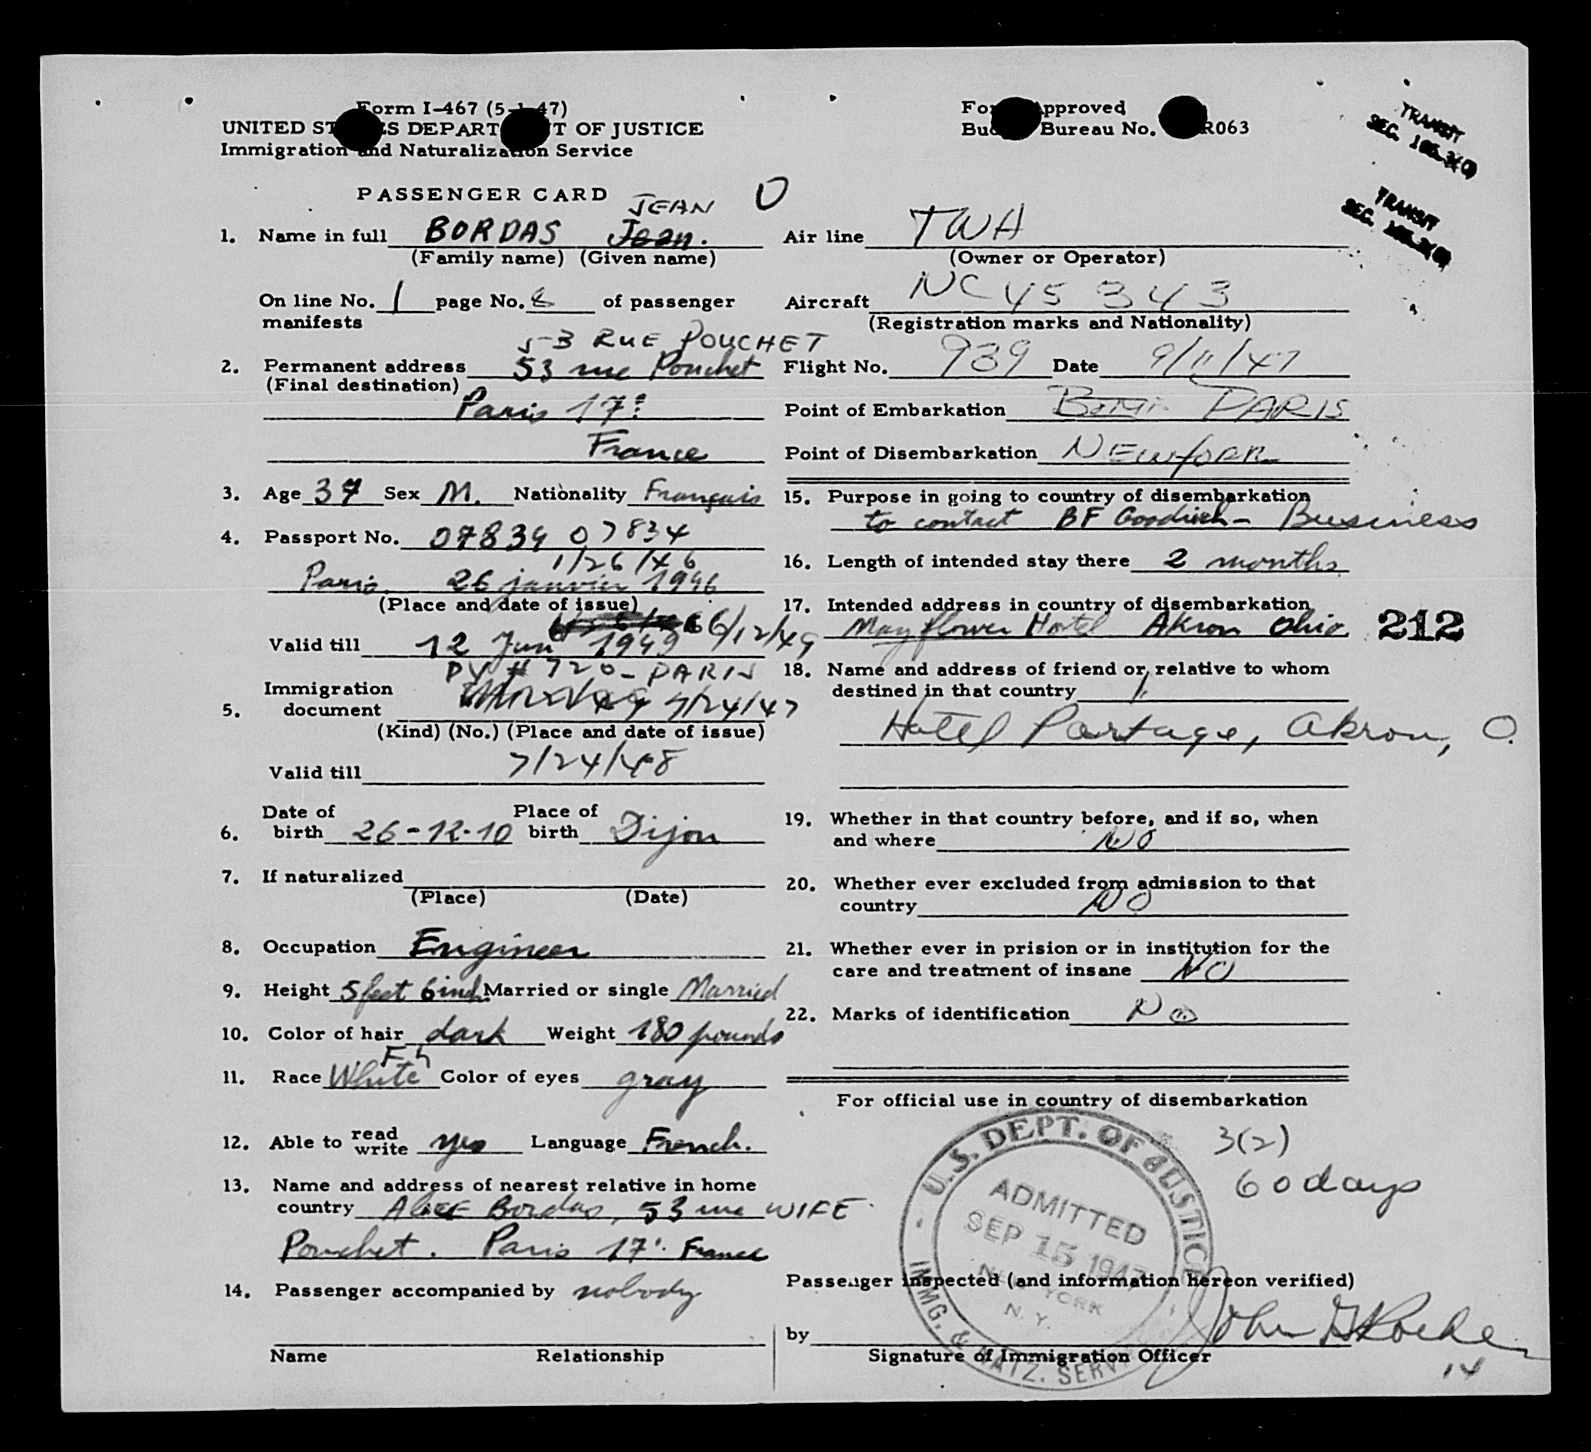 Form I-467 (5-1-47)
UNITED STATES DEPARTMENT OF JUSTICE
Immigration and Naturalization Service
Form Approved
Budget Bureau No. R063
TRANSIT
SEC.
TRANSIT
SEC.
PASSENGER CARD
JEAN
1. Name in full BORDAS Jean.
(Family name) (Given name)
On line No. 1 page No. of passenger
manifests
53 RUE POUCHET
2. Permanent address 53 rue Pouchet
(Final destination)
Paris 17e
France
3. Age 37 Sex M. Nationality Français
4. Passport No. 07834 07834
1/26/46
Paris. 26 janvier 1946
(Place and date of issue)
6/12/49
Valid till 12 Juin 1949
PV # 720 - PARIS
Immigration
5. document 7/24/47
(Kind) (No.) (Place and date of issue)
Valid till 7/24/48
6. Date of birth 26-12-10 Place of birth Dijon
7. If naturalized
(Place) (Date)
8. Occupation Engineer
9. Height 5 feet 6 inch. Married or single Married
10. Color of hair dark Weight 180 pounds
Fh
11. Race White Color of eyes gray
12. Able to read write yes Language French.
13. Name and address of nearest relative in home
country Alice Bordas, 53 rue WIFE
Pouchet. Paris 17e. France
14. Passenger accompanied by nobody
Name Relationship
O
Air line TWA
(Owner or Operator)
Aircraft NC 45343
(Registration marks and Nationality)
Flight No. 939 Date 9/11/47
Point of Embarkation PARIS
Point of Disembarkation NEWYORK
15. Purpose in going to country of disembarkation
to contact BF Goodrich - Business
16. Length of intended stay there 2 months
17. Intended address in country of disembarkation
Mayflower Hotel Akron Ohio
212
18. Name and address of friend or relative to whom
destined in that country
Hotel Portage, Akron, O.
19. Whether in that country before, and if so, when
and where NO
20. Whether ever excluded from admission to that
country NO
21. Whether ever in prision or in institution for the
care and treatment of insane NO
22. Marks of identification No
For official use in country of disembarkation
3(2)
60 days
U.S. DEPT. OF JUSTICE
ADMITTED
SEP 15 1947
NEW YORK
N. Y.
IMMG. & NATZ. SERVICE
Passenger inspected (and information hereon verified)
by John
Signature of Immigration Officer
14